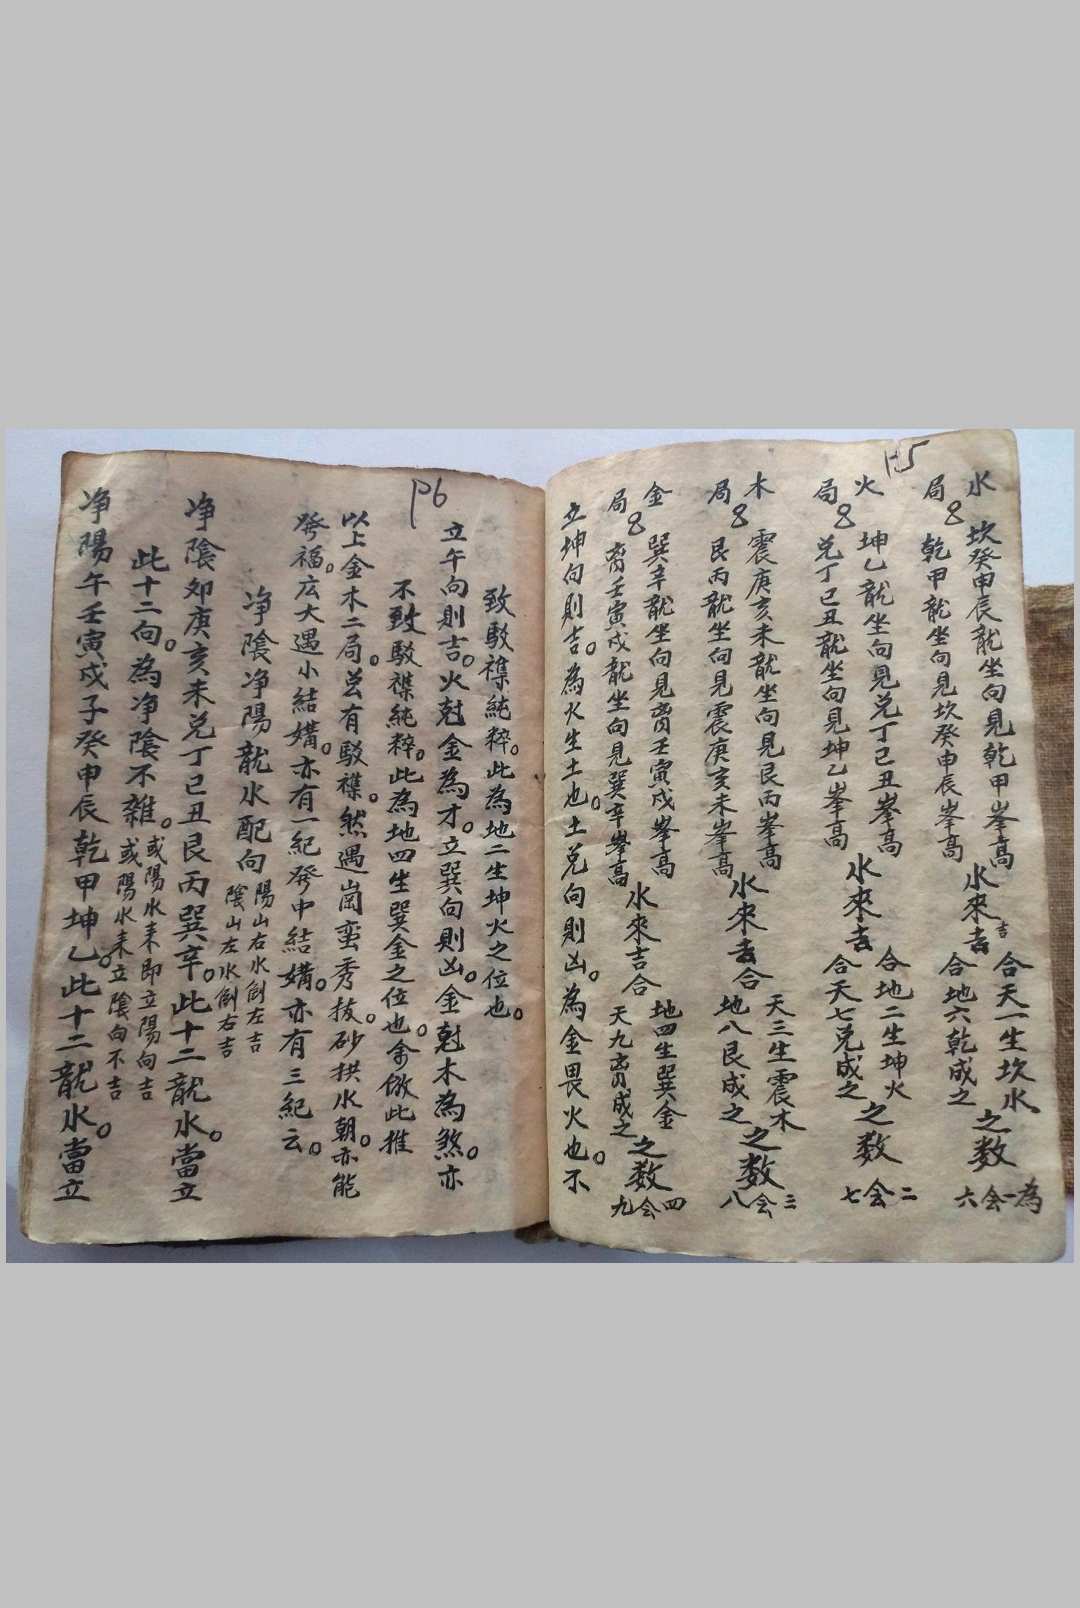 P5
水局
坎癸申辰龍坐向見乾甲峯高
乾甲龍坐向見坎癸申辰峯高
水來去吉
合天一生坎水
合地六乾成之
之数
為一会六
火局
坤乙龍坐向見兑丁巳丑峯高
兑丁巳丑龍坐向見坤乙峯高
水來去
合地二生坤火
合天七兑成之
之数
二会七
木局
震庚亥未龍坐向見艮丙峯高
艮丙龍坐向見震庚亥未峯高
水來去合
天三生震木
地八艮成之
之数
三会八
金局
巽辛龍坐向見离壬寅戍峯高
离壬寅戍龍坐向見巽辛峯高
水來吉合
地四生巽金
天九离成之
之数
四会九
立坤向則吉。為火生土也。土兑向則凶。為金畏火也。不
P6
致駁襍純粹。此為地二生坤火之位也。
立午向則吉。火尅金為才。立巽向則凶。金尅木為煞。亦
不致駁襍純粹。此為地四生巽金之位也。餘倣此推
以上金木二局。总有駁襍。然遇峦秀拔。砂拱水朝。亦能
發福。広大遇小結媾。亦有一紀發中結媾。亦有三紀云。
净陰净陽龍水配向
陽山右水倒左吉
陰山左水倒右吉
净陰卯庚亥未兑丁巳丑艮丙巽辛。此十二龍水。當立
此十二向。為净陰不雜。
或陽水来即立陽向吉
或陽水来立陰向不吉
净陽午壬寅戍子癸申辰乾甲坤乙。此十二龍水。當立